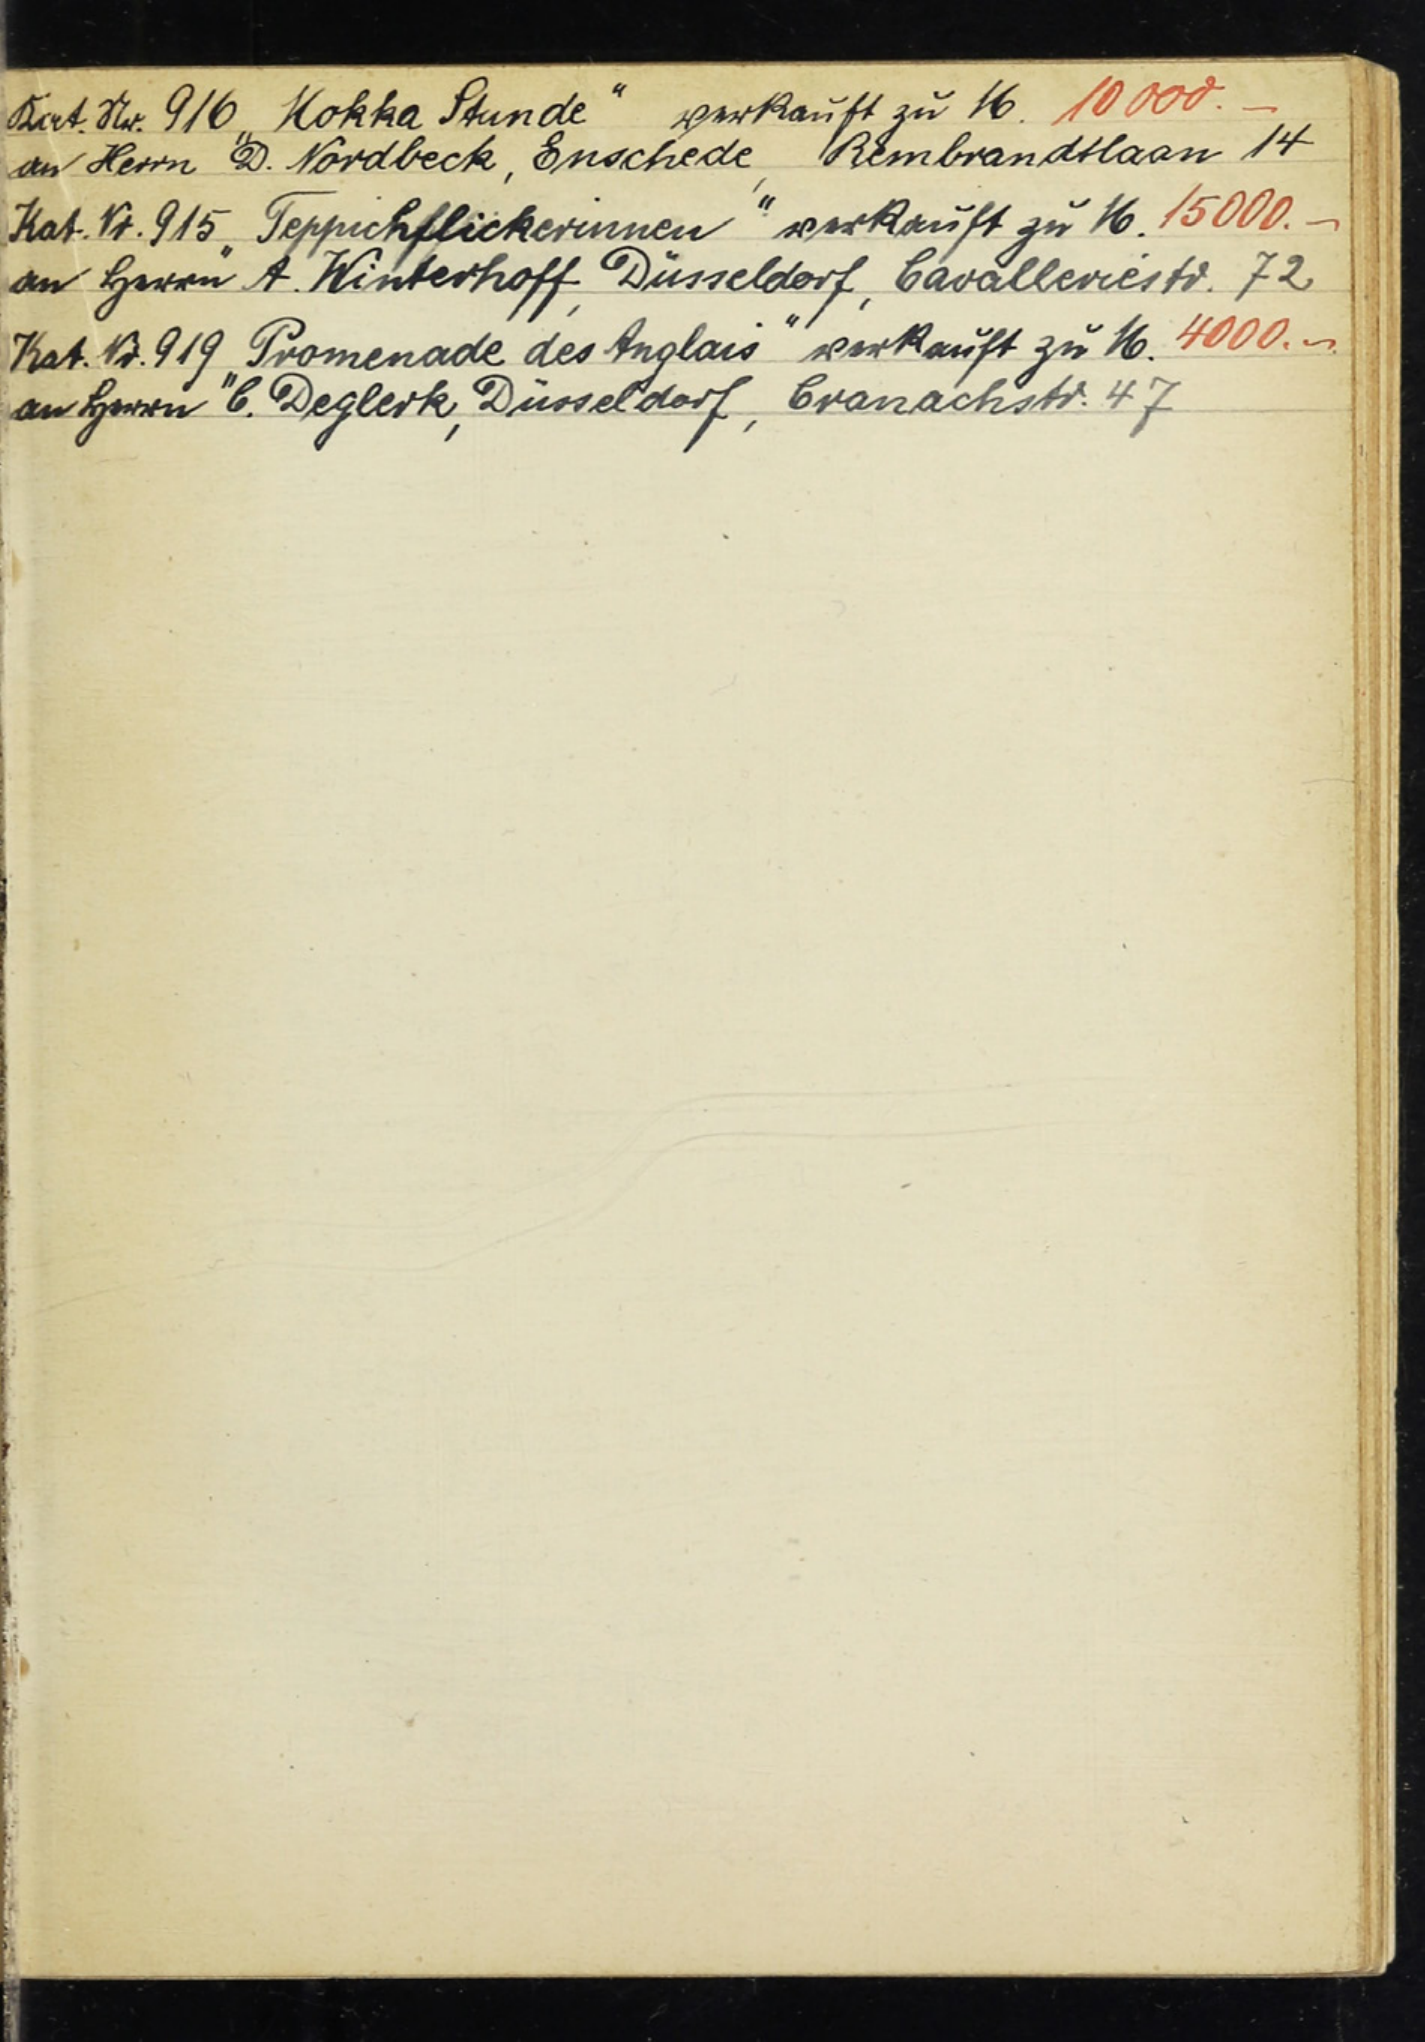 Kat. Nr. 916 „Mokka Stunde“ verkauft zu M. 10000.–
an Herrn D. Nordbeck, Enschede, Rembrandtlaan 14
Kat. Nr. 915 „Teppichflickerinnen“ verkauft zu M. 15000.–
an Herrn A. Winterhoff, Düsseldorf, Cavalleriestr. 72
Kat. Nr. 919 „Promenade des Anglais“ verkauft zu M. 4000.–
an Herrn C. Deglerk, Düsseldorf, Cranachstr. 47